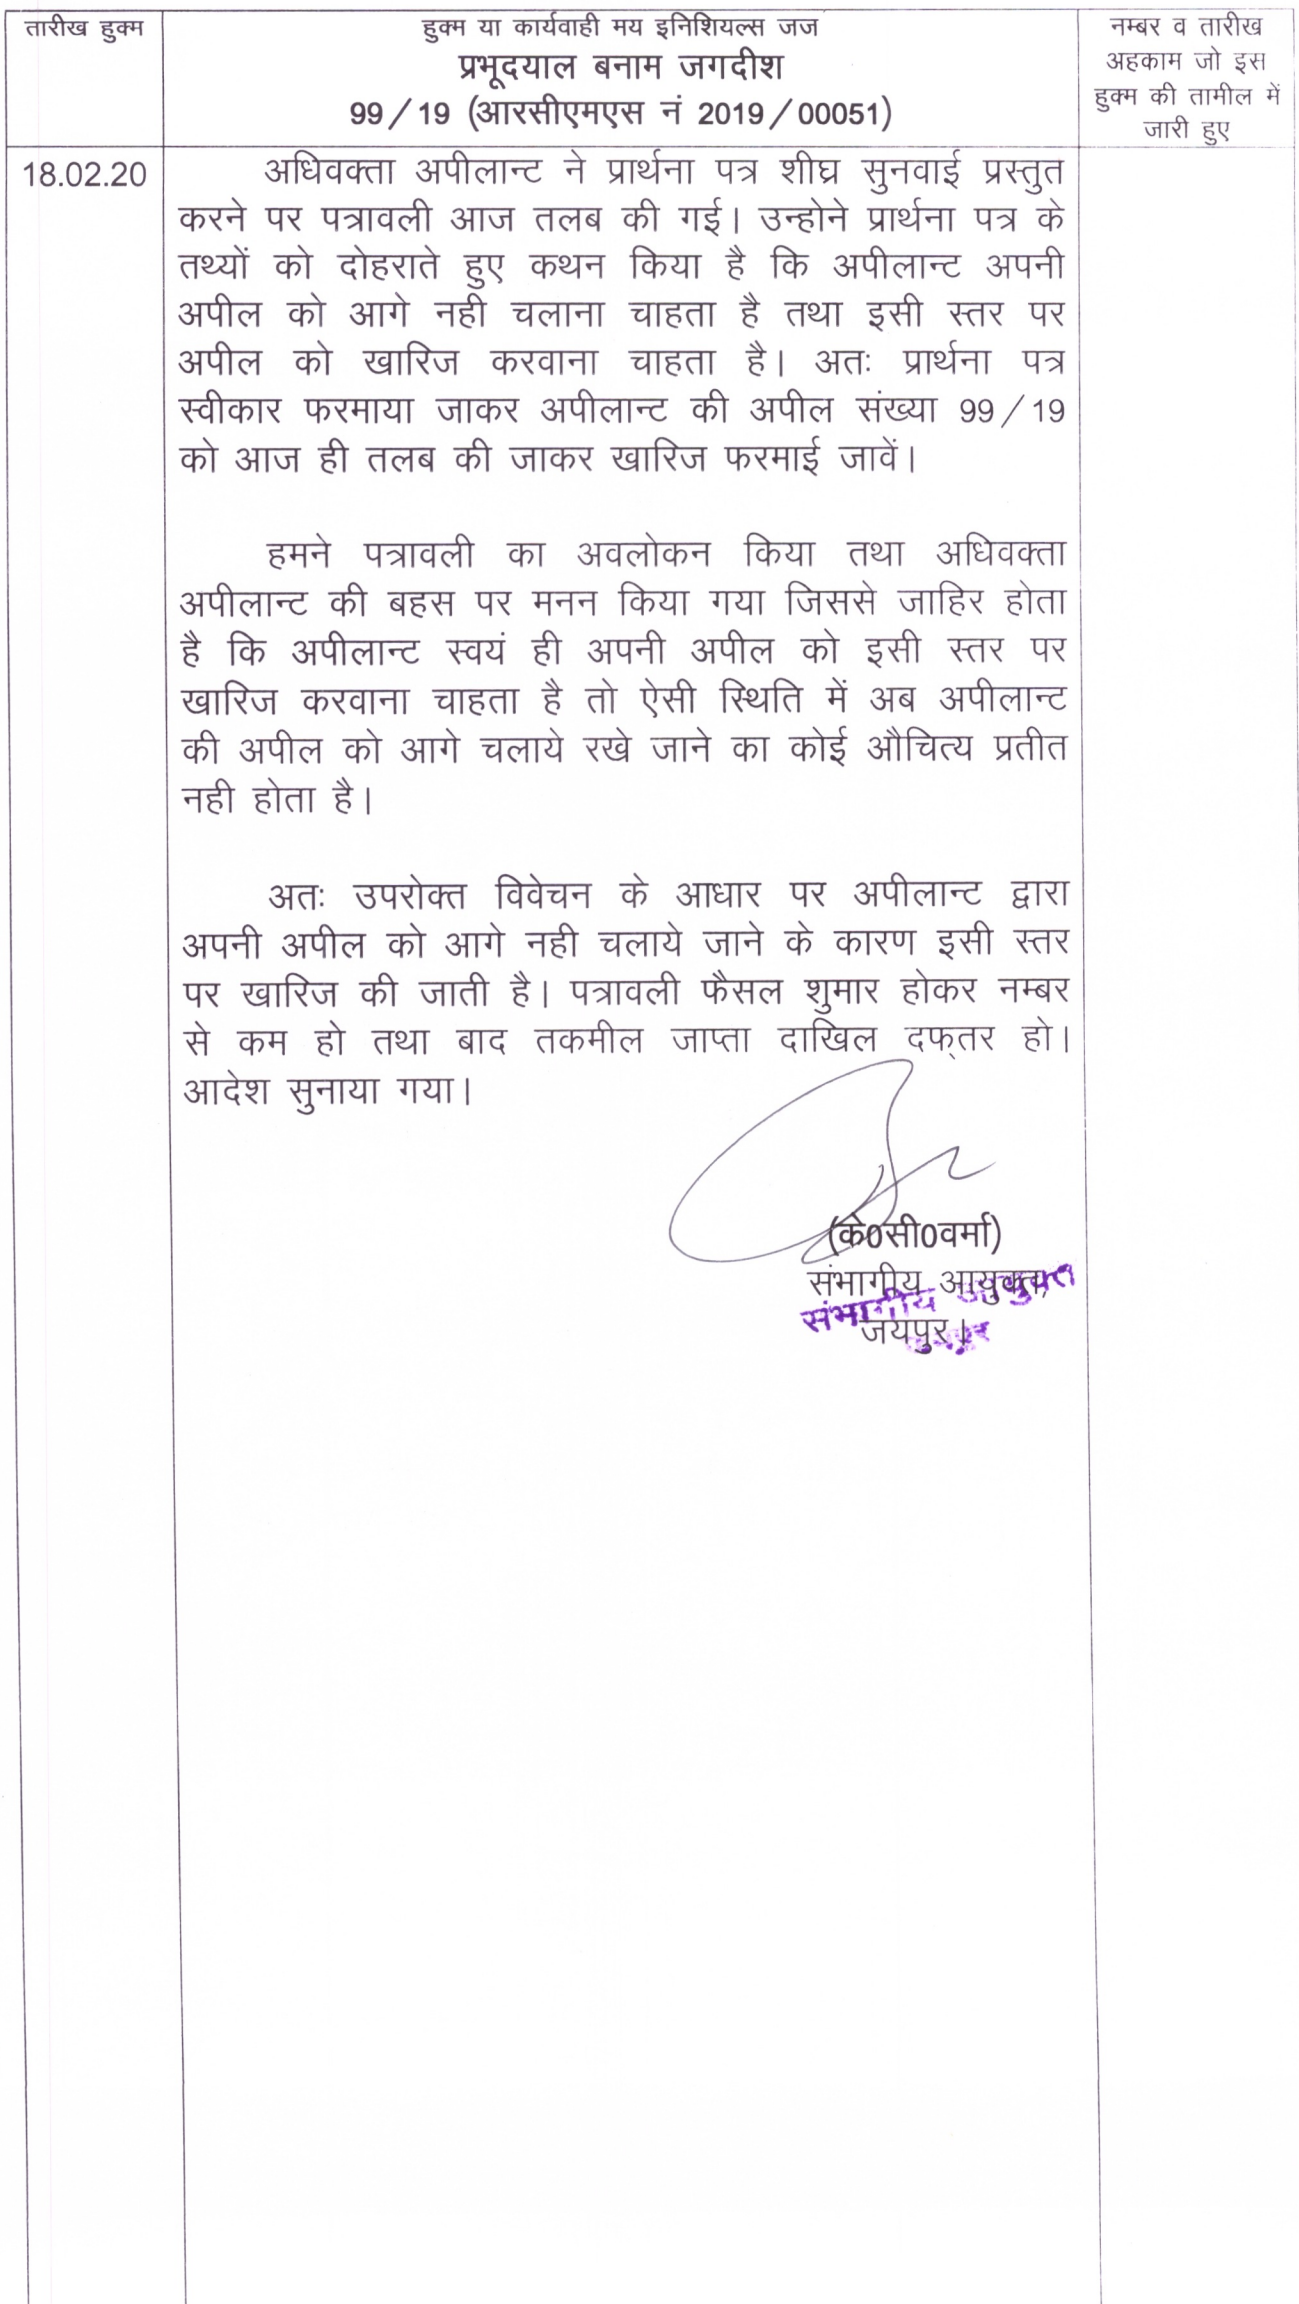 तारीख हुक्म
हुक्म या कार्यवाही मय इनिशियल्स जज
प्रभूदयाल बनाम जगदीश
99/19 (आरसीएमएस नं 2019/00051)
नम्बर व तारीख
अहकाम जो इस
हुक्म की तामील में
जारी हुए
18.02.20
अधिवक्ता अपीलान्ट ने प्रार्थना पत्र शीघ्र सुनवाई प्रस्तुत
करने पर पत्रावली आज तलब की गई। उन्होने प्रार्थना पत्र के
तथ्यों को दोहराते हुए कथन किया है कि अपीलान्ट अपनी
अपील को आगे नही चलाना चाहता है तथा इसी स्तर पर
अपील को खारिज करवाना चाहता है। अतः प्रार्थना पत्र
स्वीकार फरमाया जाकर अपीलान्ट की अपील संख्या 99/19
को आज ही तलब की जाकर खारिज फरमाई जावें।
हमने पत्रावली का अवलोकन किया तथा अधिवक्ता
अपीलान्ट की बहस पर मनन किया गया जिससे जाहिर होता
है कि अपीलान्ट स्वयं ही अपनी अपील को इसी स्तर पर
खारिज करवाना चाहता है तो ऐसी स्थिति में अब अपीलान्ट
की अपील को आगे चलाये रखे जाने का कोई औचित्य प्रतीत
नही होता है।
अतः उपरोक्त विवेचन के आधार पर अपीलान्ट द्वारा
अपनी अपील को आगे नही चलाये जाने के कारण इसी स्तर
पर खारिज की जाती है। पत्रावली फैसल शुमार होकर नम्बर
से कम हो तथा बाद तकमील जाप्ता दाखिल दफ्तर हो।
आदेश सुनाया गया।
(के0सी0वर्मा)
संभागीय आयुक्त,
संभागीय आयुक्त
जयपुर।
जयपुर